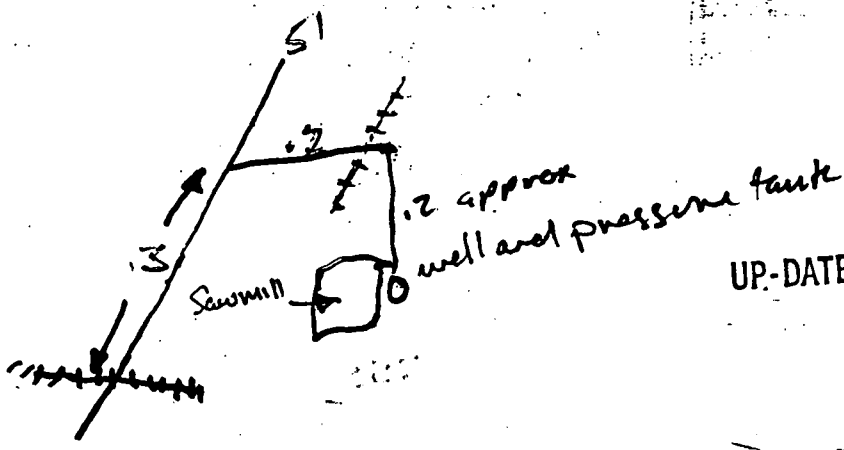 51
.2
.2 approx
.3
well and pressure tank
Sawmill
UP-DATE